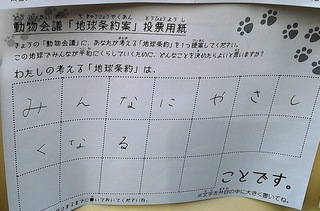 動物会議「地球条約案」投票用紙
きょうの「動物会議」に、あなたが考える「地球条約」を1つ提案してください。
この地球でみんなが平和にくらしていくために、どんなことを決めたらよいと思いますか?
わたしの考える「地球条約」は、
みんなにやさし
くなる
ことです。
※文字を升目の中に大きく書いてね。